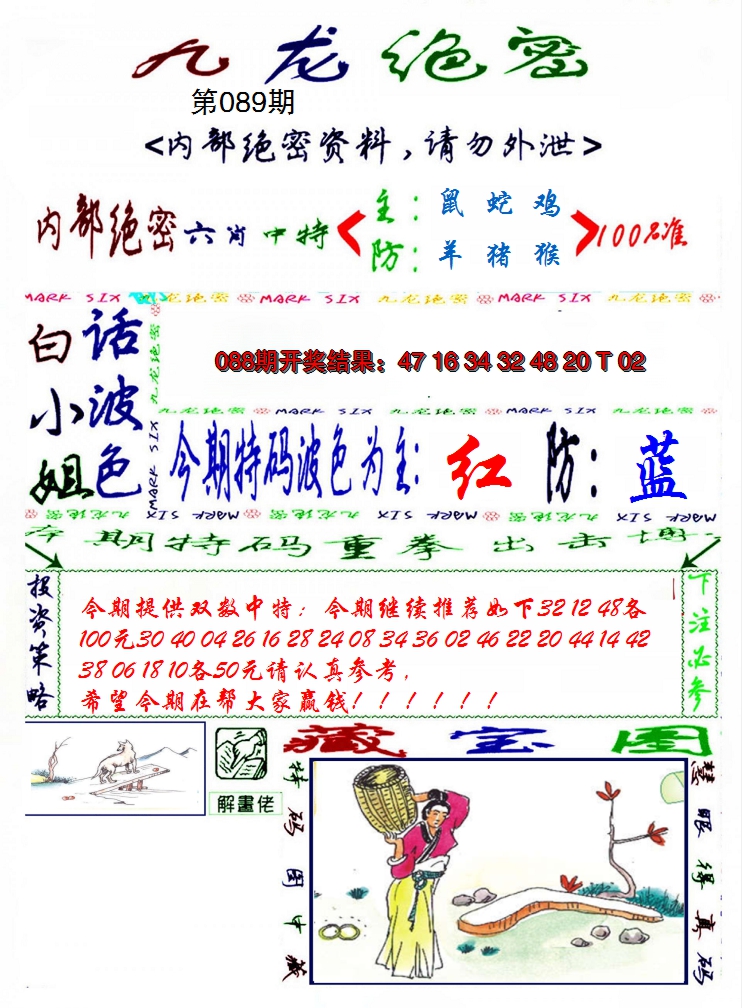 九龙绝密
第089期
<内部绝密资料,请勿外泄>
内部绝密六肖中特
主:鼠 蛇 鸡
防:羊 猪 猴
100%准
MARK SIX 九龙绝密 MARK SIX 九龙绝密 MARK SIX 九龙绝密
白小姐
话波色
九龙绝密
MARK SIX
088期开奖结果:47 16 34 32 48 20 T 02
九龙绝密 MARK SIX 九龙绝密 MARK SIX 九龙绝密
今期特码波色为主:红 防:蓝
九龙绝密 MARK SIX 九龙绝密 MARK SIX 九龙绝密 MARK SIX
本期特码重拳出击博
投资策略
今期提供双数中特;今期继续推荐如下32 12 48各
100元30 40 04 26 16 28 24 08 34 36 02 46 22 20 44 14 42
38 06 18 10各50元请认真参考,
希望今期在帮大家赢钱!!!!!!
下注必参
解畫佬
藏宝图
特码图中藏
慧眼得真码